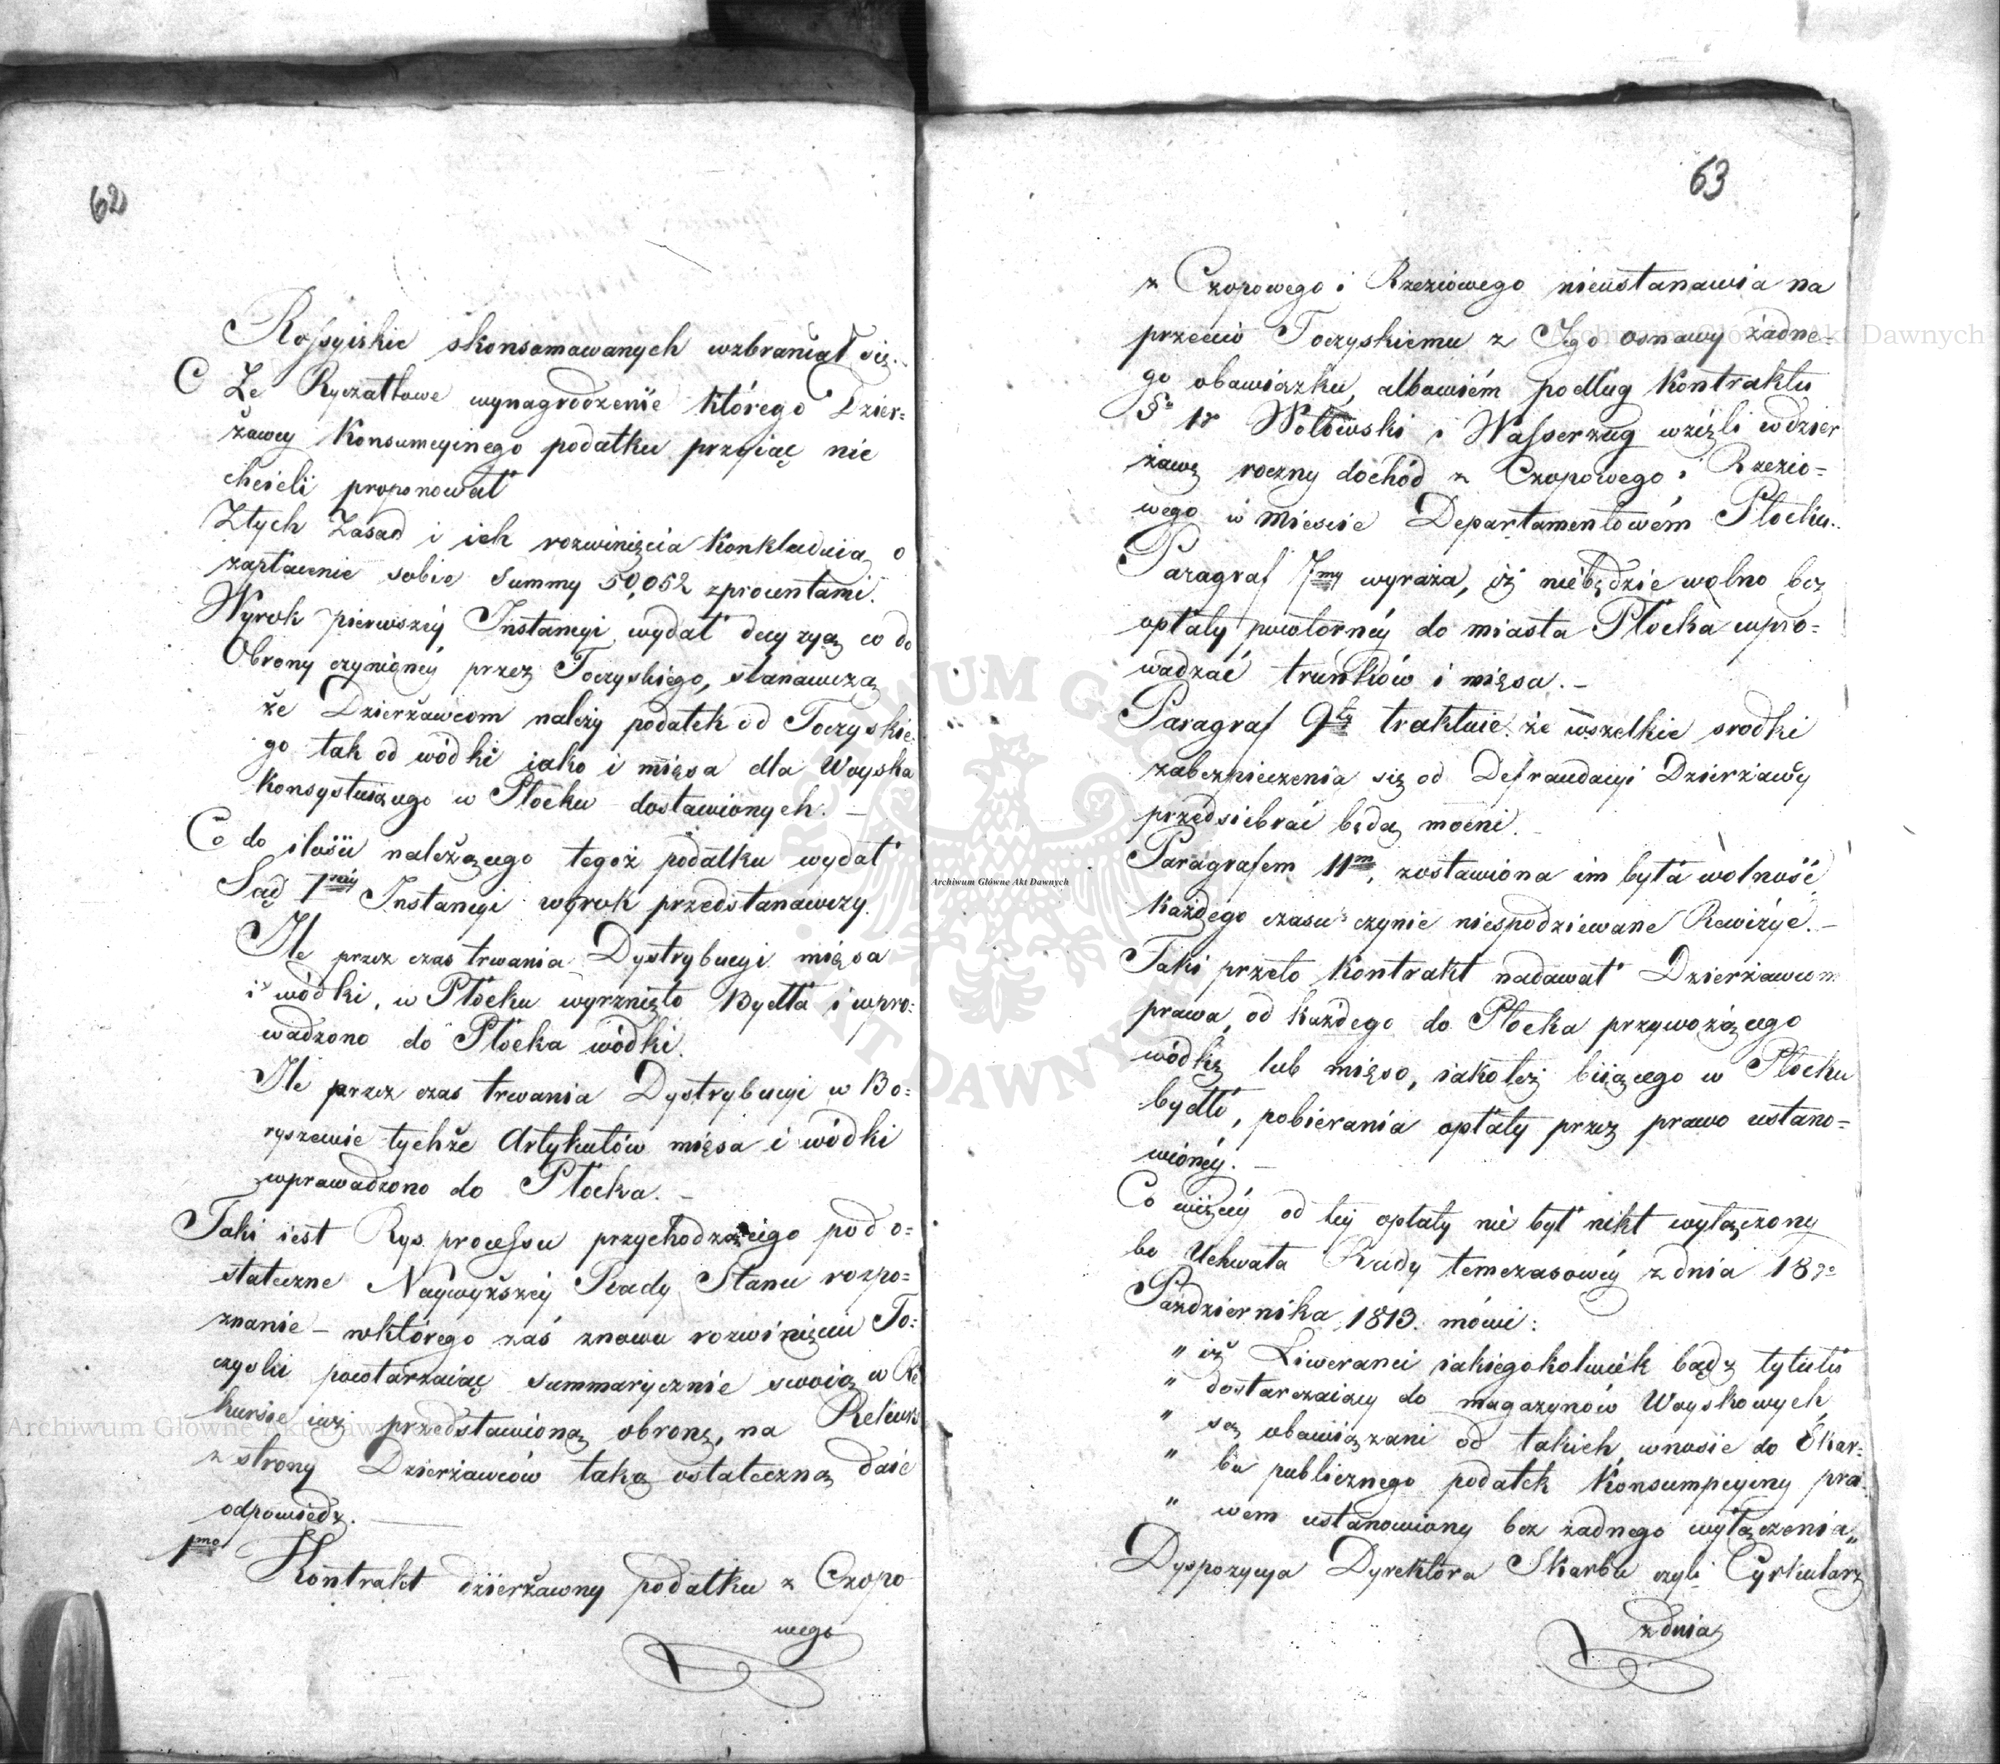 62
Rossyiskie skonsomawanych wzbraniał się.
C Że Ryczałtowe wynagrodzenie którego Dzier-
żawcy Konsumcyinego podatku przyiąć nie
chcieli proponował
Z tych Zasad i ich rozwinięcia Konkluduią o
zapłacenie sobie Summy 50,052 z procentami.
Wyrok pierwszey Instancyi wydał decyzyą co do
Obrony czynioney przez Toczyskiego, stanawczą
że Dzierżawcom należy podatek od Toczyskie-
go tak od wódki iako i mięsa dla Woyska
Konsystuiącego w Płocku dostawionych. —
Co do ilości należącego tegoż podatku wydał
Sąd 1szey Instancyi wyrok przedstanawczy
Ile przez czas trwania Dystrybucyi mięsa
i wódki, w Płocku wyrznięto Bydła i wpro-
wadzono do Płocka wódki.
Ile przez czas trwania Dystrybucyi w Bo-
ryszewie tychże Artykułów mięsa i wódki
wprawadzono do Płocka. —
Taki iest Rys processu przychodzącego pod o-
stateczne Naywyższey Rady Stanu rozpo-
znanie — w którego zaś znowu rozwinięciu To-
czyski powtarzaiąc summarycznie swoią w Re
kursie iuż przedstawioną obronę, na Rekurs
z strony Dzierżawców taką ostateczną daie
odpowiedź. —
1mo Kontrakt dzierżawny podatku z Czopo
wego
63
z Czopowego i Rzeziowego nieustanawia na
przeciw Toczyskiemu z Jego osnawy żadne-
go obawiązku, albowiém podług Kontraktu
§u 1o Wołowski i Wasserzug wzięli w dzier
żawę roczny dochód z Czopowego i Rzezio-
wego w miescie Departamentowém Płocku.
Paragraf 7my wyraża, iż niebędzie wolno bez
opłaty powtórney do miasta Płocka wpro-
wadzać trunków i mięsa. —
Paragraf 9ty traktuie że wszelkie srodki
zabezpieczenia się od Defraudacyi Dzierżawcy
przedsiebrać będą mocni. —
Paragrafem 11m, zostawiona im była wolność
każdego czasu czynie niespodziewane Rewizye. —
Taki przeto Kontrakt nadawał Dzierżawcom
prawa, od każdego do Płocka przywożącego
wódkę lub mięso, iakoteż biiącego w Płocku
bydło, pobierania opłaty przez prawo ustano-
wioney. —
Co więcey od tey opłaty nie był nikt wyłączony
bo Uchwała Rady temczasowey z dnia 18go
Października 1813. mówi:
„ iż Liweranci iakiegokolwiek bądź tytułu
„ dostarczaiący do magazynów Woyskowych,
„ są obawiązani od takich wnosic do Skar-
„ bu publicznego podatek Konsumpcyiny pra-
„ wem ustanowiony bez żadnego wyłączenia„
Dyspozycya Dyrektora Skarbu czyli Cyrkularz
z dnia
Archiwum Główne Akt Dawnych
Archiwum Główne Akt Dawnych
Archiwum Główne Akt Dawnych
ARCHIWUM GŁÓWNE AKT DAWNYCH